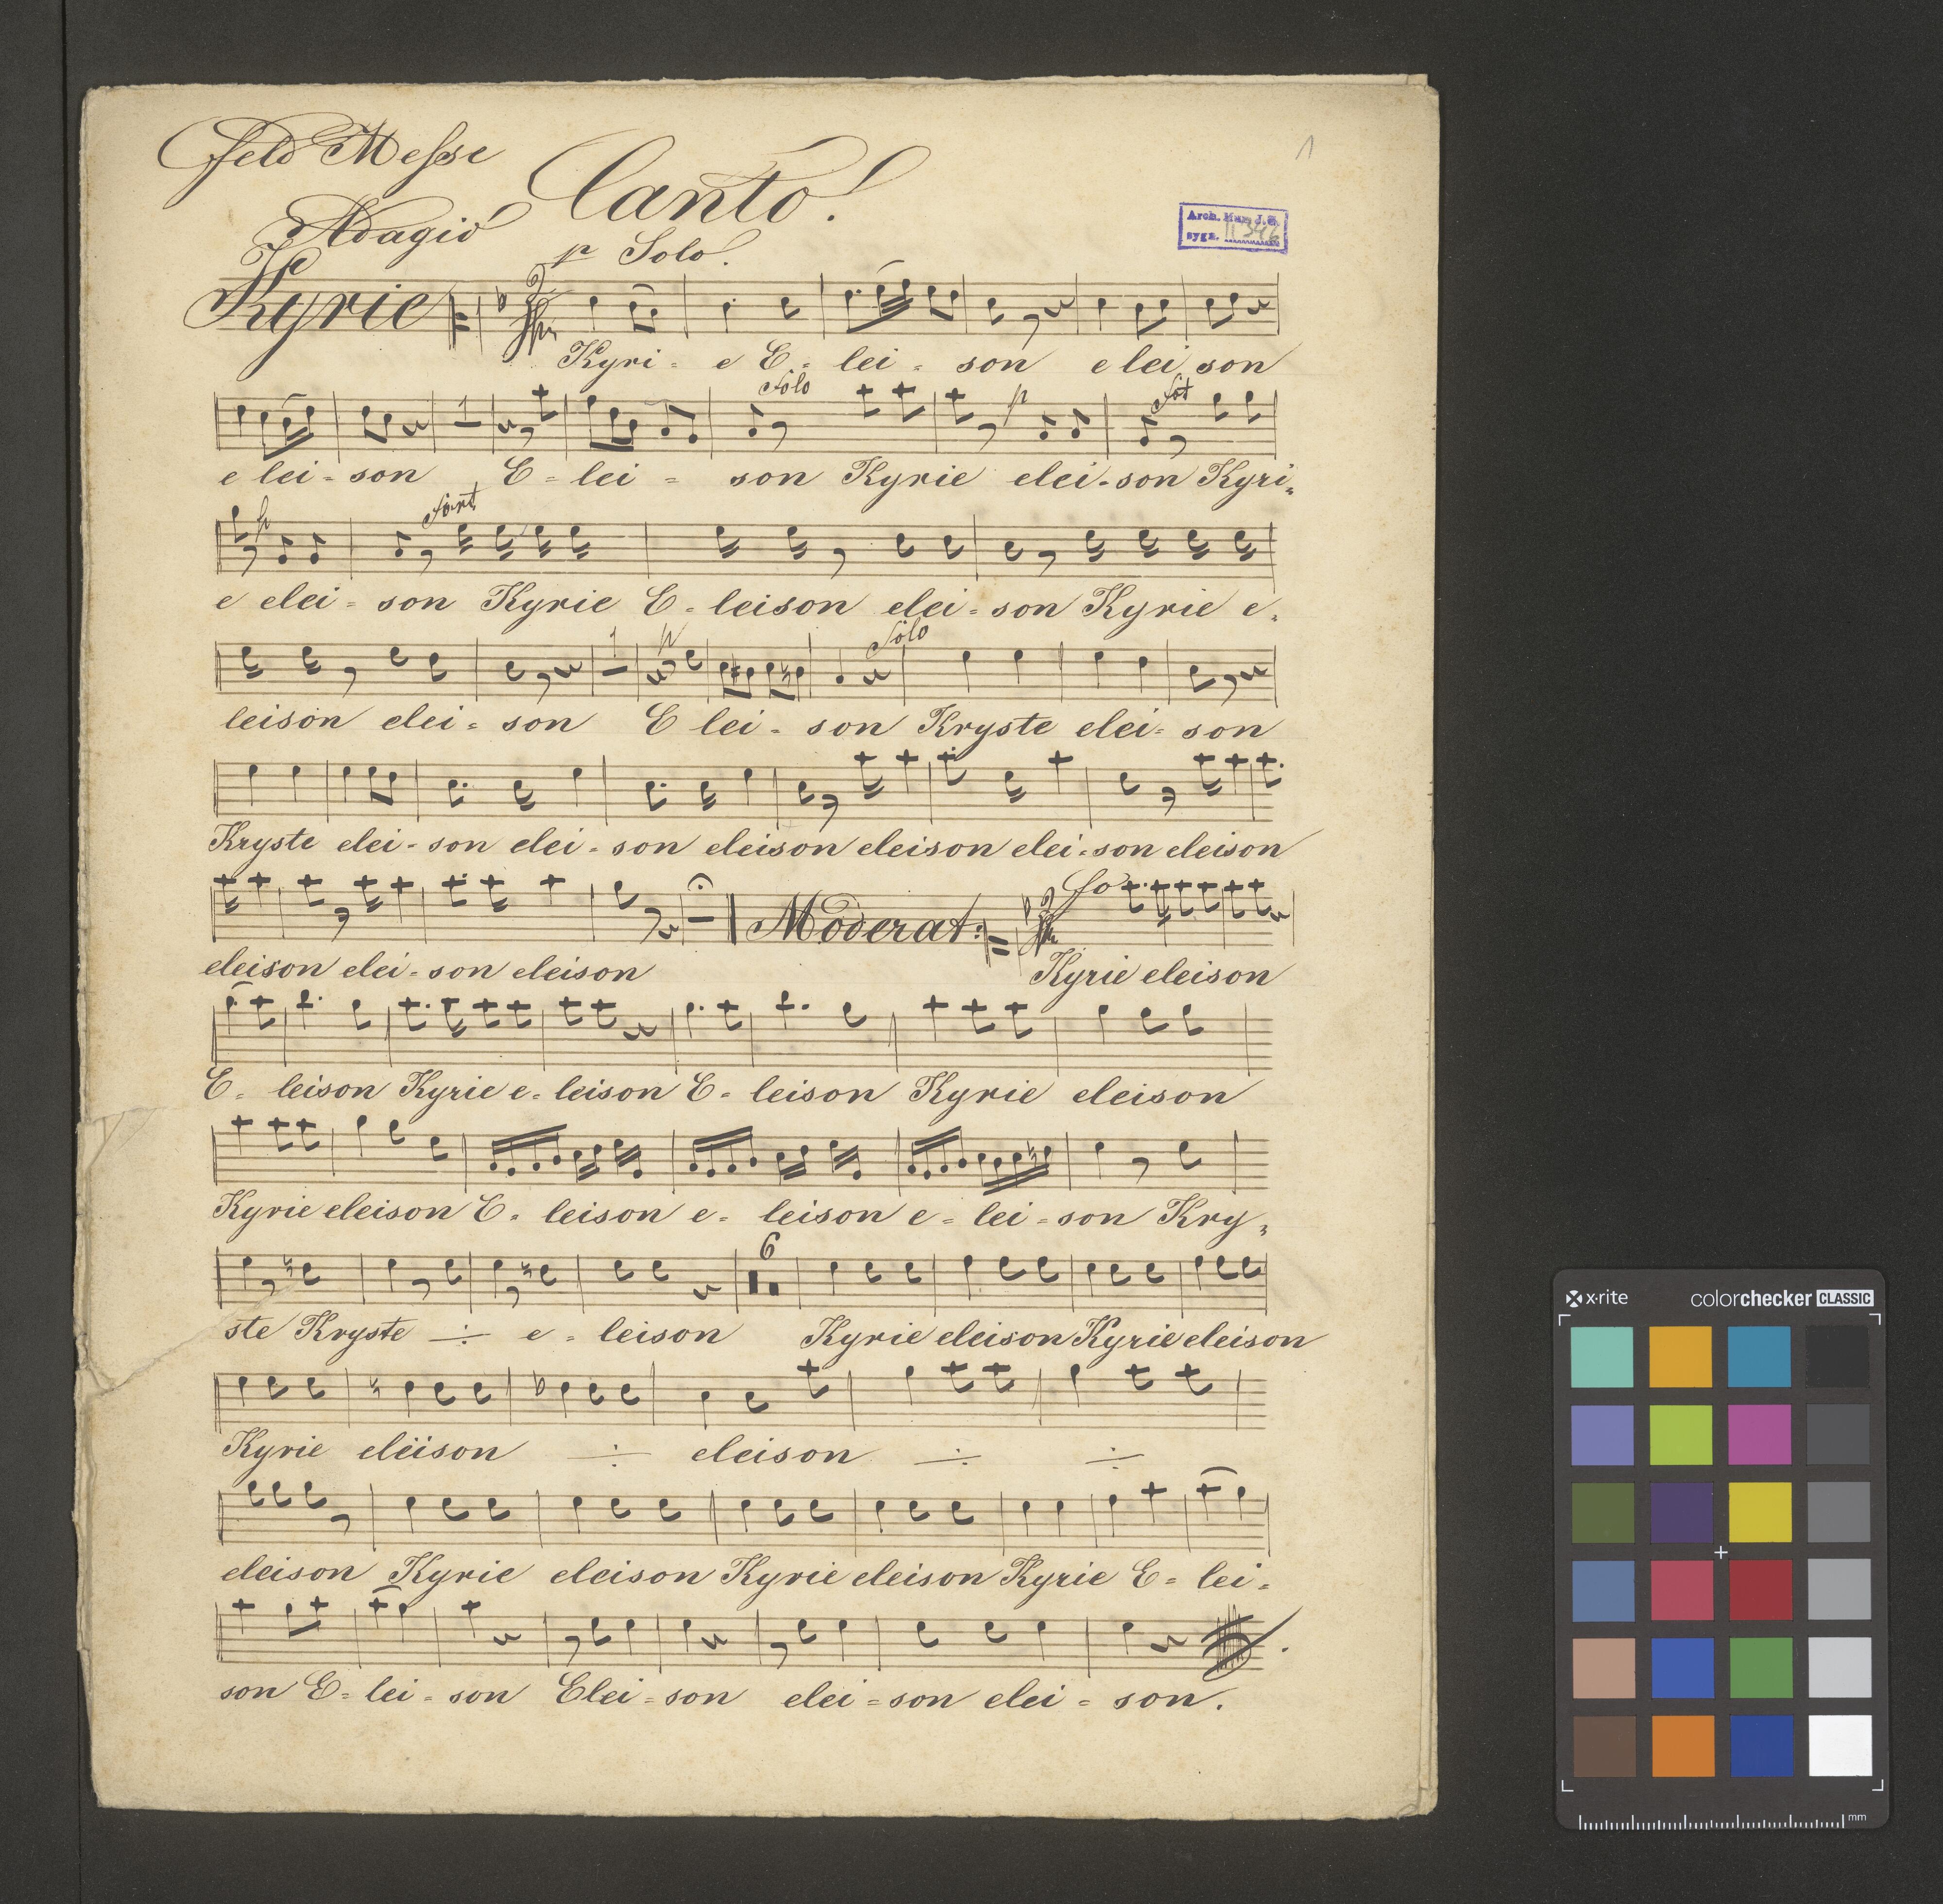 Feld Messe
Canto!
1
Adagio
Arch. Muz. J. G.
sygn. II 346
p Solo.
Kyrie
Kyri - e E - lei - son e lei son
Solo p fot
e lei - son E - lei - son Kyrie elei - son Kyri -
p fort
e elei - son Kyrie E - leison elei - son Kyrie e -
1 p Solo
leison elei - son E lei - son Kryste elei - son
Kryste elei - son elei - son eleison eleison elei - son eleison
Moderat: fo
eleison elei - son eleison Kyrie eleison
E - leison Kyrie e - leison E - leison Kyrie eleison
Kyrie eleison E - leison e - leison e - lei - son Kry -
6
ste Kryste ÷ e - leison Kyrie eleison Kyrie eleison
Kyrie eleison ÷ eleison ÷ ÷
eleison Kyrie eleison Kyrie eleison Kyrie E - lei -
son E - lei - son Elei - son elei - son elei - son.
x·rite colorchecker CLASSIC
mm